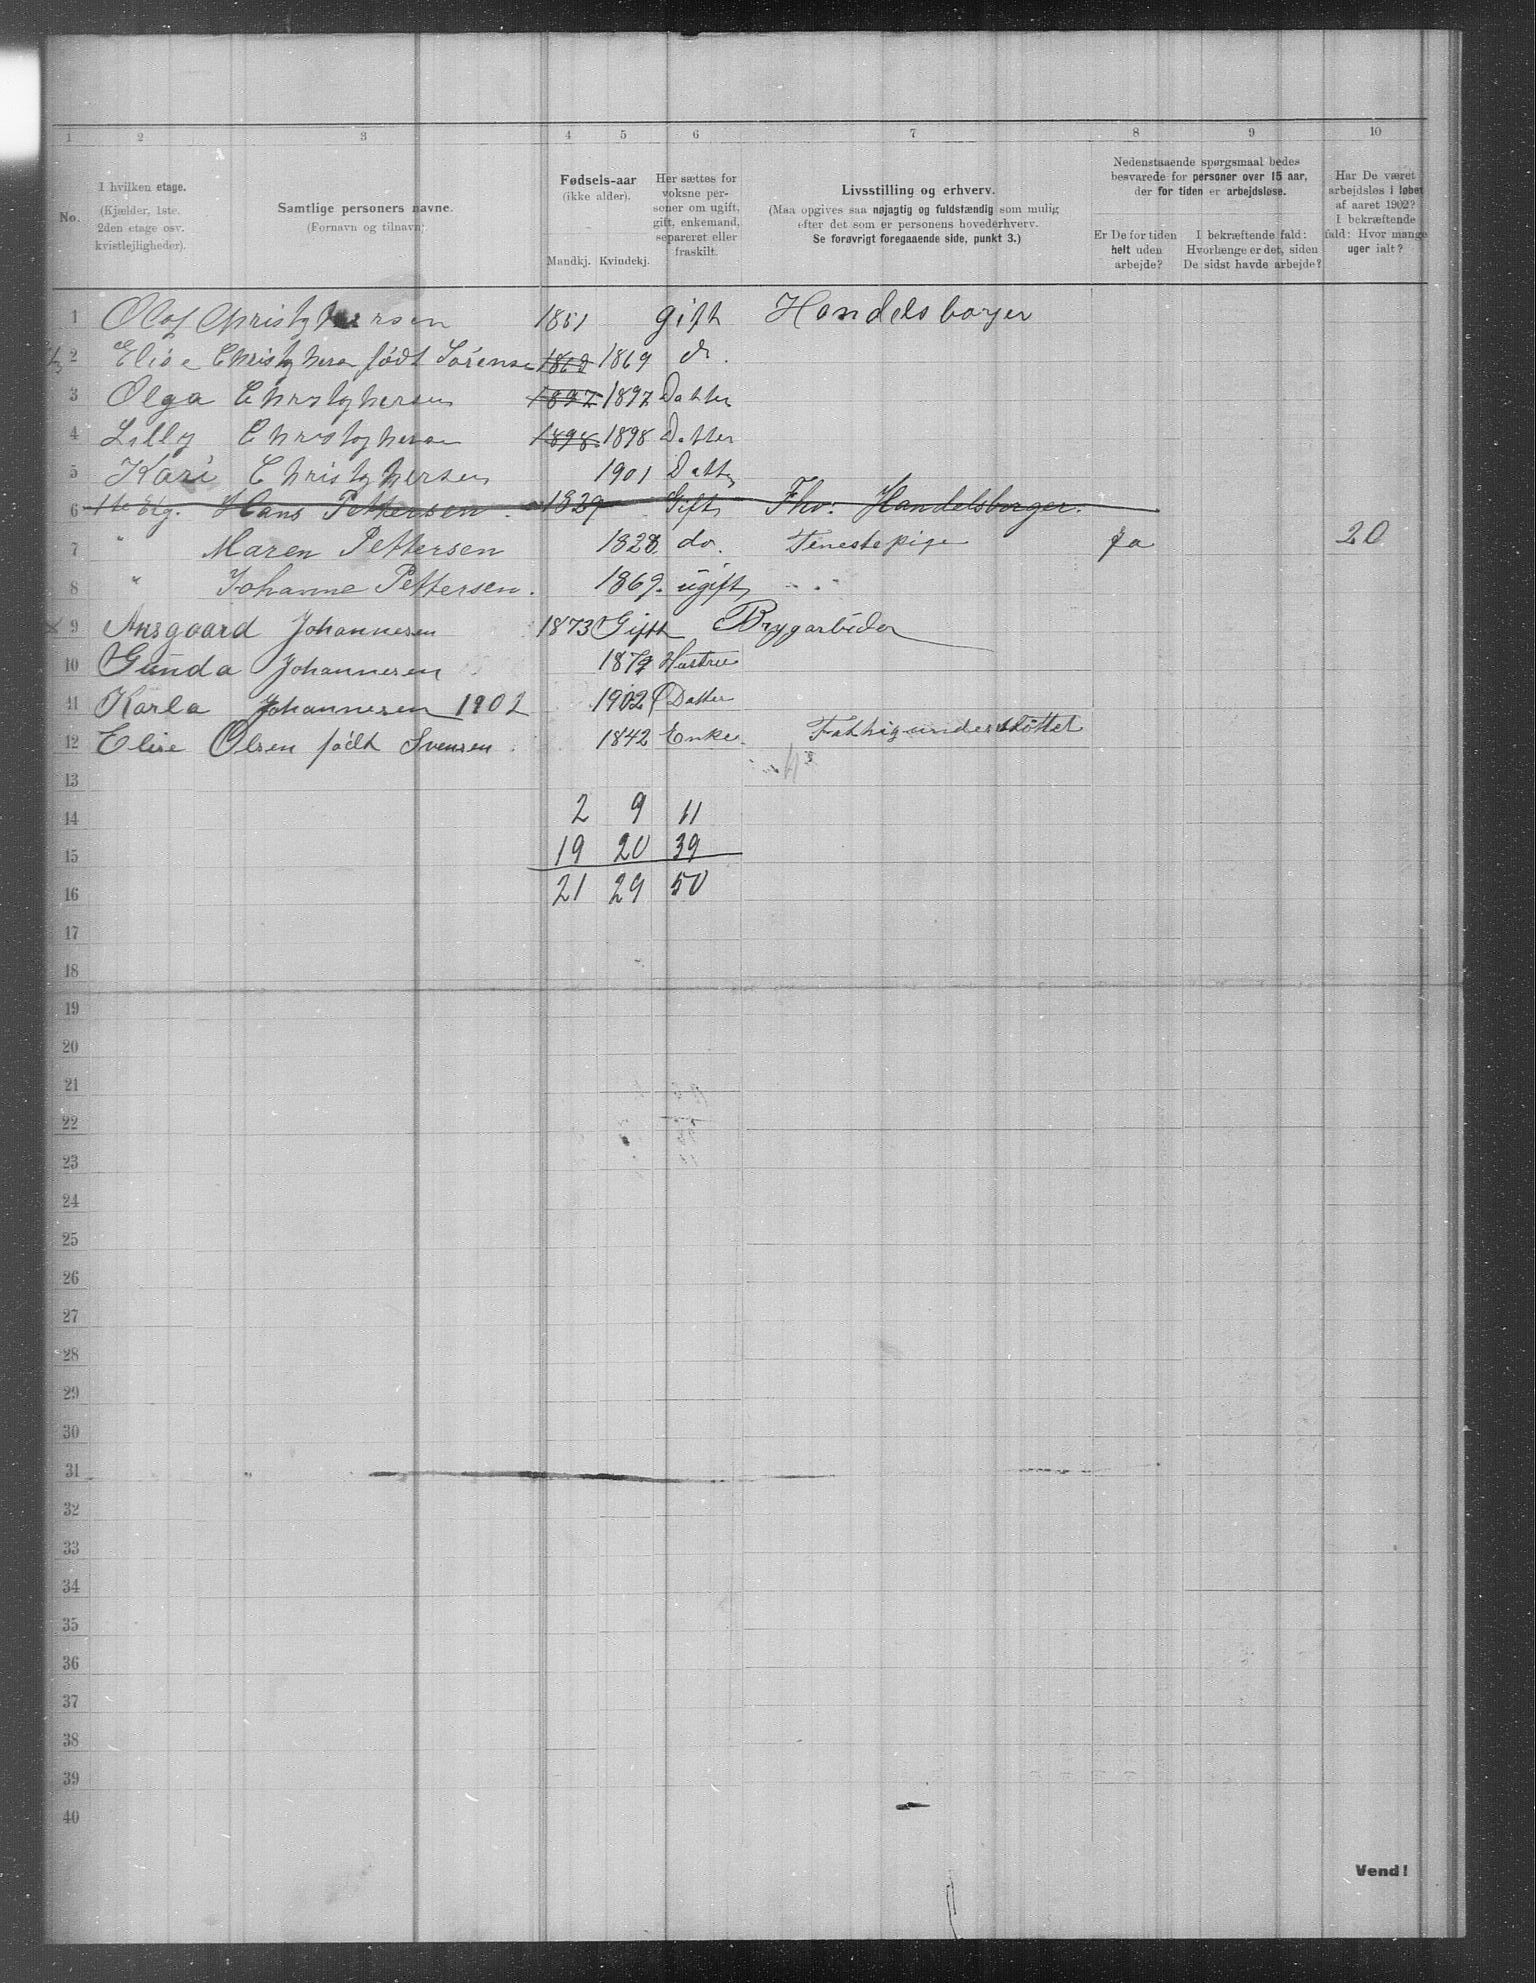 1 2 3 4 5 6 7 8 9 10
No.
I hvilken etage.
(Kjælder, 1ste.
2den etage osv.
kvistlejligheder).
Samtlige personers navne.
(Fornavn og tilnavn)
Fødsels-aar
(ikke alder).
Mandkj. Kvindekj.
Her sættes for
voksne per-
soner om ugift,
gift, enkemand,
separeret eller
fraskilt.
Livsstilling og erhverv.
(Maa opgives saa nøjagtig og fuldstændig som mulig
efter det som er personens hovederhverv.
Se forøvrigt foregaaende side, punkt 3.)
Nedenstaaende spørgsmaal bedes
besvarede for personer over 15 aar,
der for tiden er arbejdsløse.
Er De for tiden
helt uden
arbejde?
I bekræftende fald:
Hvorlænge er det, siden
De sidst havde arbejde?
Har De været
arbejdsløs i løbet
af aaret 1902?
I bekræftende
fald: Hvor mange
uger ialt?
1 Olaf Christophersen 1851 gift Handelsborger
2 Elise Christophersen født Sörensen 1862 1869 do.
3 Olga Christophersen 1897 1897 Datter
4 Lilly Christophersen 1898 1898 Datter
5 Kari Christophersen 1901 Datter
6 1te Etg. Hans Pettersen. 1829 Gift Fhv: Handelsborger.
7 " Maren Pettersen 1828. do. Tenestepige Ja 20
8 " Johanne Pettersen. 1869. ugift " "
9 Ansgaard Johannesen 1873 Gift Brygarbeider
10 Gunda Johannesen 1879 Hustru
11 Karla Johannesen 1902 1902 Datter
12 Elise Olsen født Svensen 1842 Enke. Fattigunderstöttet
13
14 2 9 11
15 19 20 39
16 21 29 50
17
18
19
20
21
22
23
24
25
26
27
28
29
30
31
32
33
34
35
36
37
38
39
40
Vend!